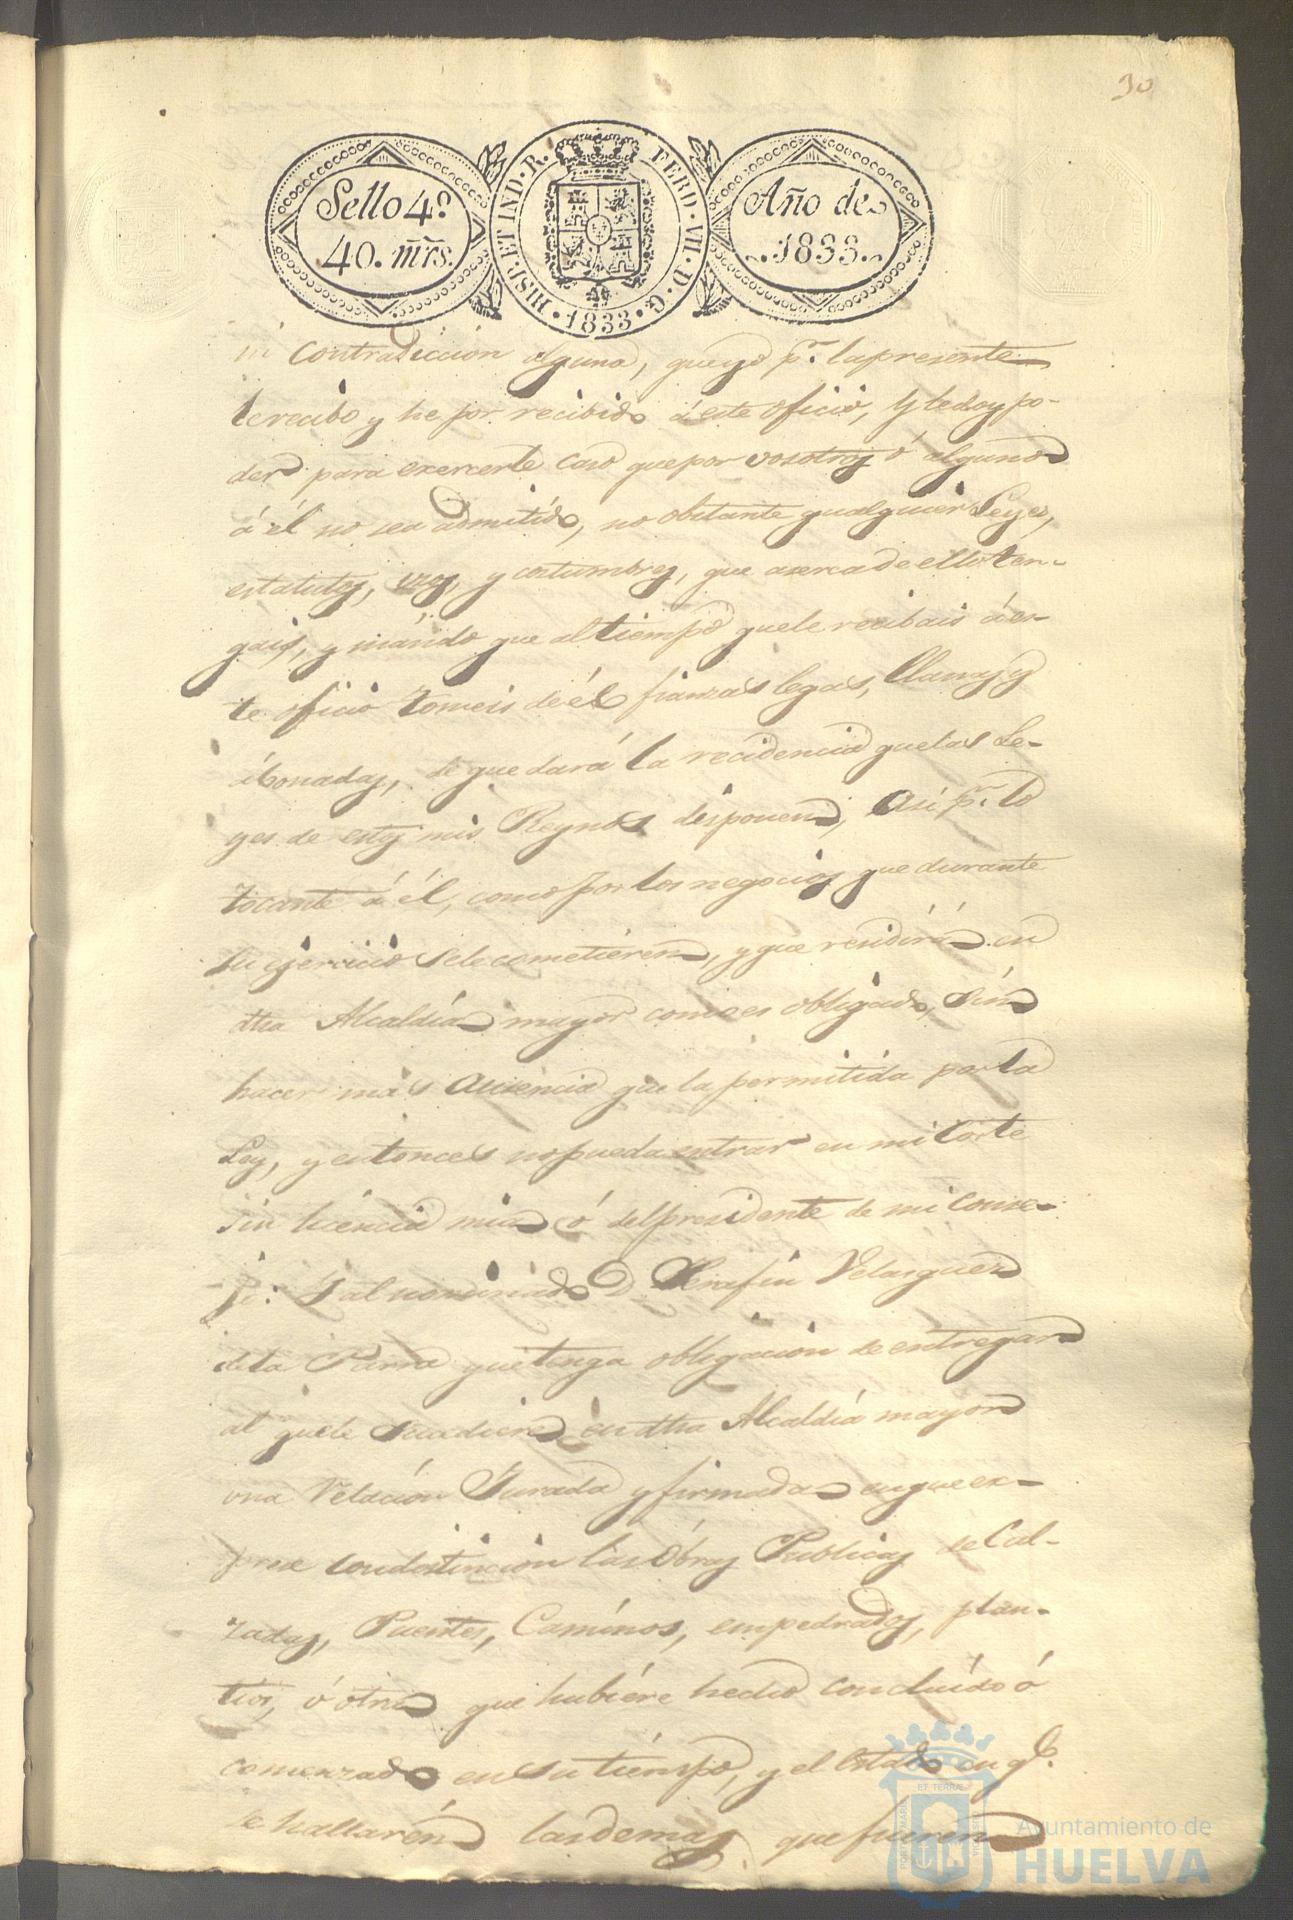 30
Sello 4º
40. mrs.
HISP. ET IND. R. FERD. VII. D. G. 1833
Año de
1833.
ni Contradiccion alguna, que yo pr. la presente
le recibo y he por recibido á este oficio, y le doy po-
der para exercerle caso que por vosotros ó alguno
á él no sea admitido, no obstante qualquier Leyes,
estatutos, usos, y costumbres, que acerca de ello ten-
gais, y mándo que al tiempo que le recibais á es-
te oficio tomeis de él fianzas legas, llanas y
abonadas, de que dará la recidencia que las Le-
yes de estos mis Reynos disponen, asi pr. lo
tocante á él, como por los negocios que durante
su ejercicio se le cometieren, y que residirá en
dha Alcaldía mayor como es obligado, sin
hacer mas ausencia que la permitida por la
Ley, y entonces no pueda entrar en mi Corte
sin licencia mia ó del presidente de mi Conse-
jo: Y al nominado D. Serafin Velasquez
de la Parra que tenga obligacion de entregar
al que le sucediere en dha Alcaldía mayor
una Relación Jurada y firmada en que ex-
prese con distincion las Obras Publicas de Cal-
zadas, Puentes, Caminos, empedrados, plan-
tios, ó otras que hubiére hecho concluído ó
comenzado en su tiempo, y el Estado en q.
se hallaren las demas que fueren
Ayuntamiento de
HUELVA